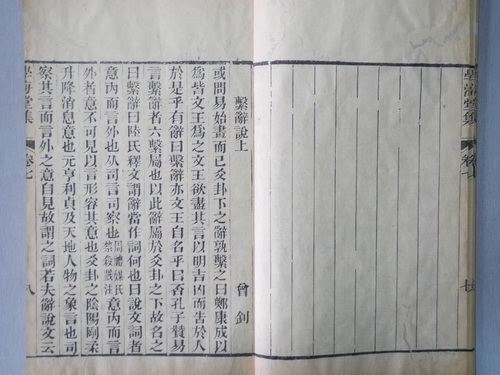 繫辭說上
曾釗
或問易始畫而已爻卦下之辭孰繫之曰鄭康成以
為皆文王為之文王欲盡其言以明吉凶而告於人
於是乎有辭曰繫辭亦文王自名乎曰否孔子贊易
言繫辭者六繫屬也以此辭屬於爻卦之下故名之
繫辭曰陸氏釋文謂辭當作詞何也曰說文詞者
意內而言外也从司言司察也周禮媒氏禁殺戮注意內而言
外者意不可見以言形容其意也爻卦之陰陽剛柔
升降消息意也元亨利貞及天地人物之象言也司
察其言而言外之意自見故謂之詞若夫辭說文云
學海堂集
卷七
八
學海堂集
卷七